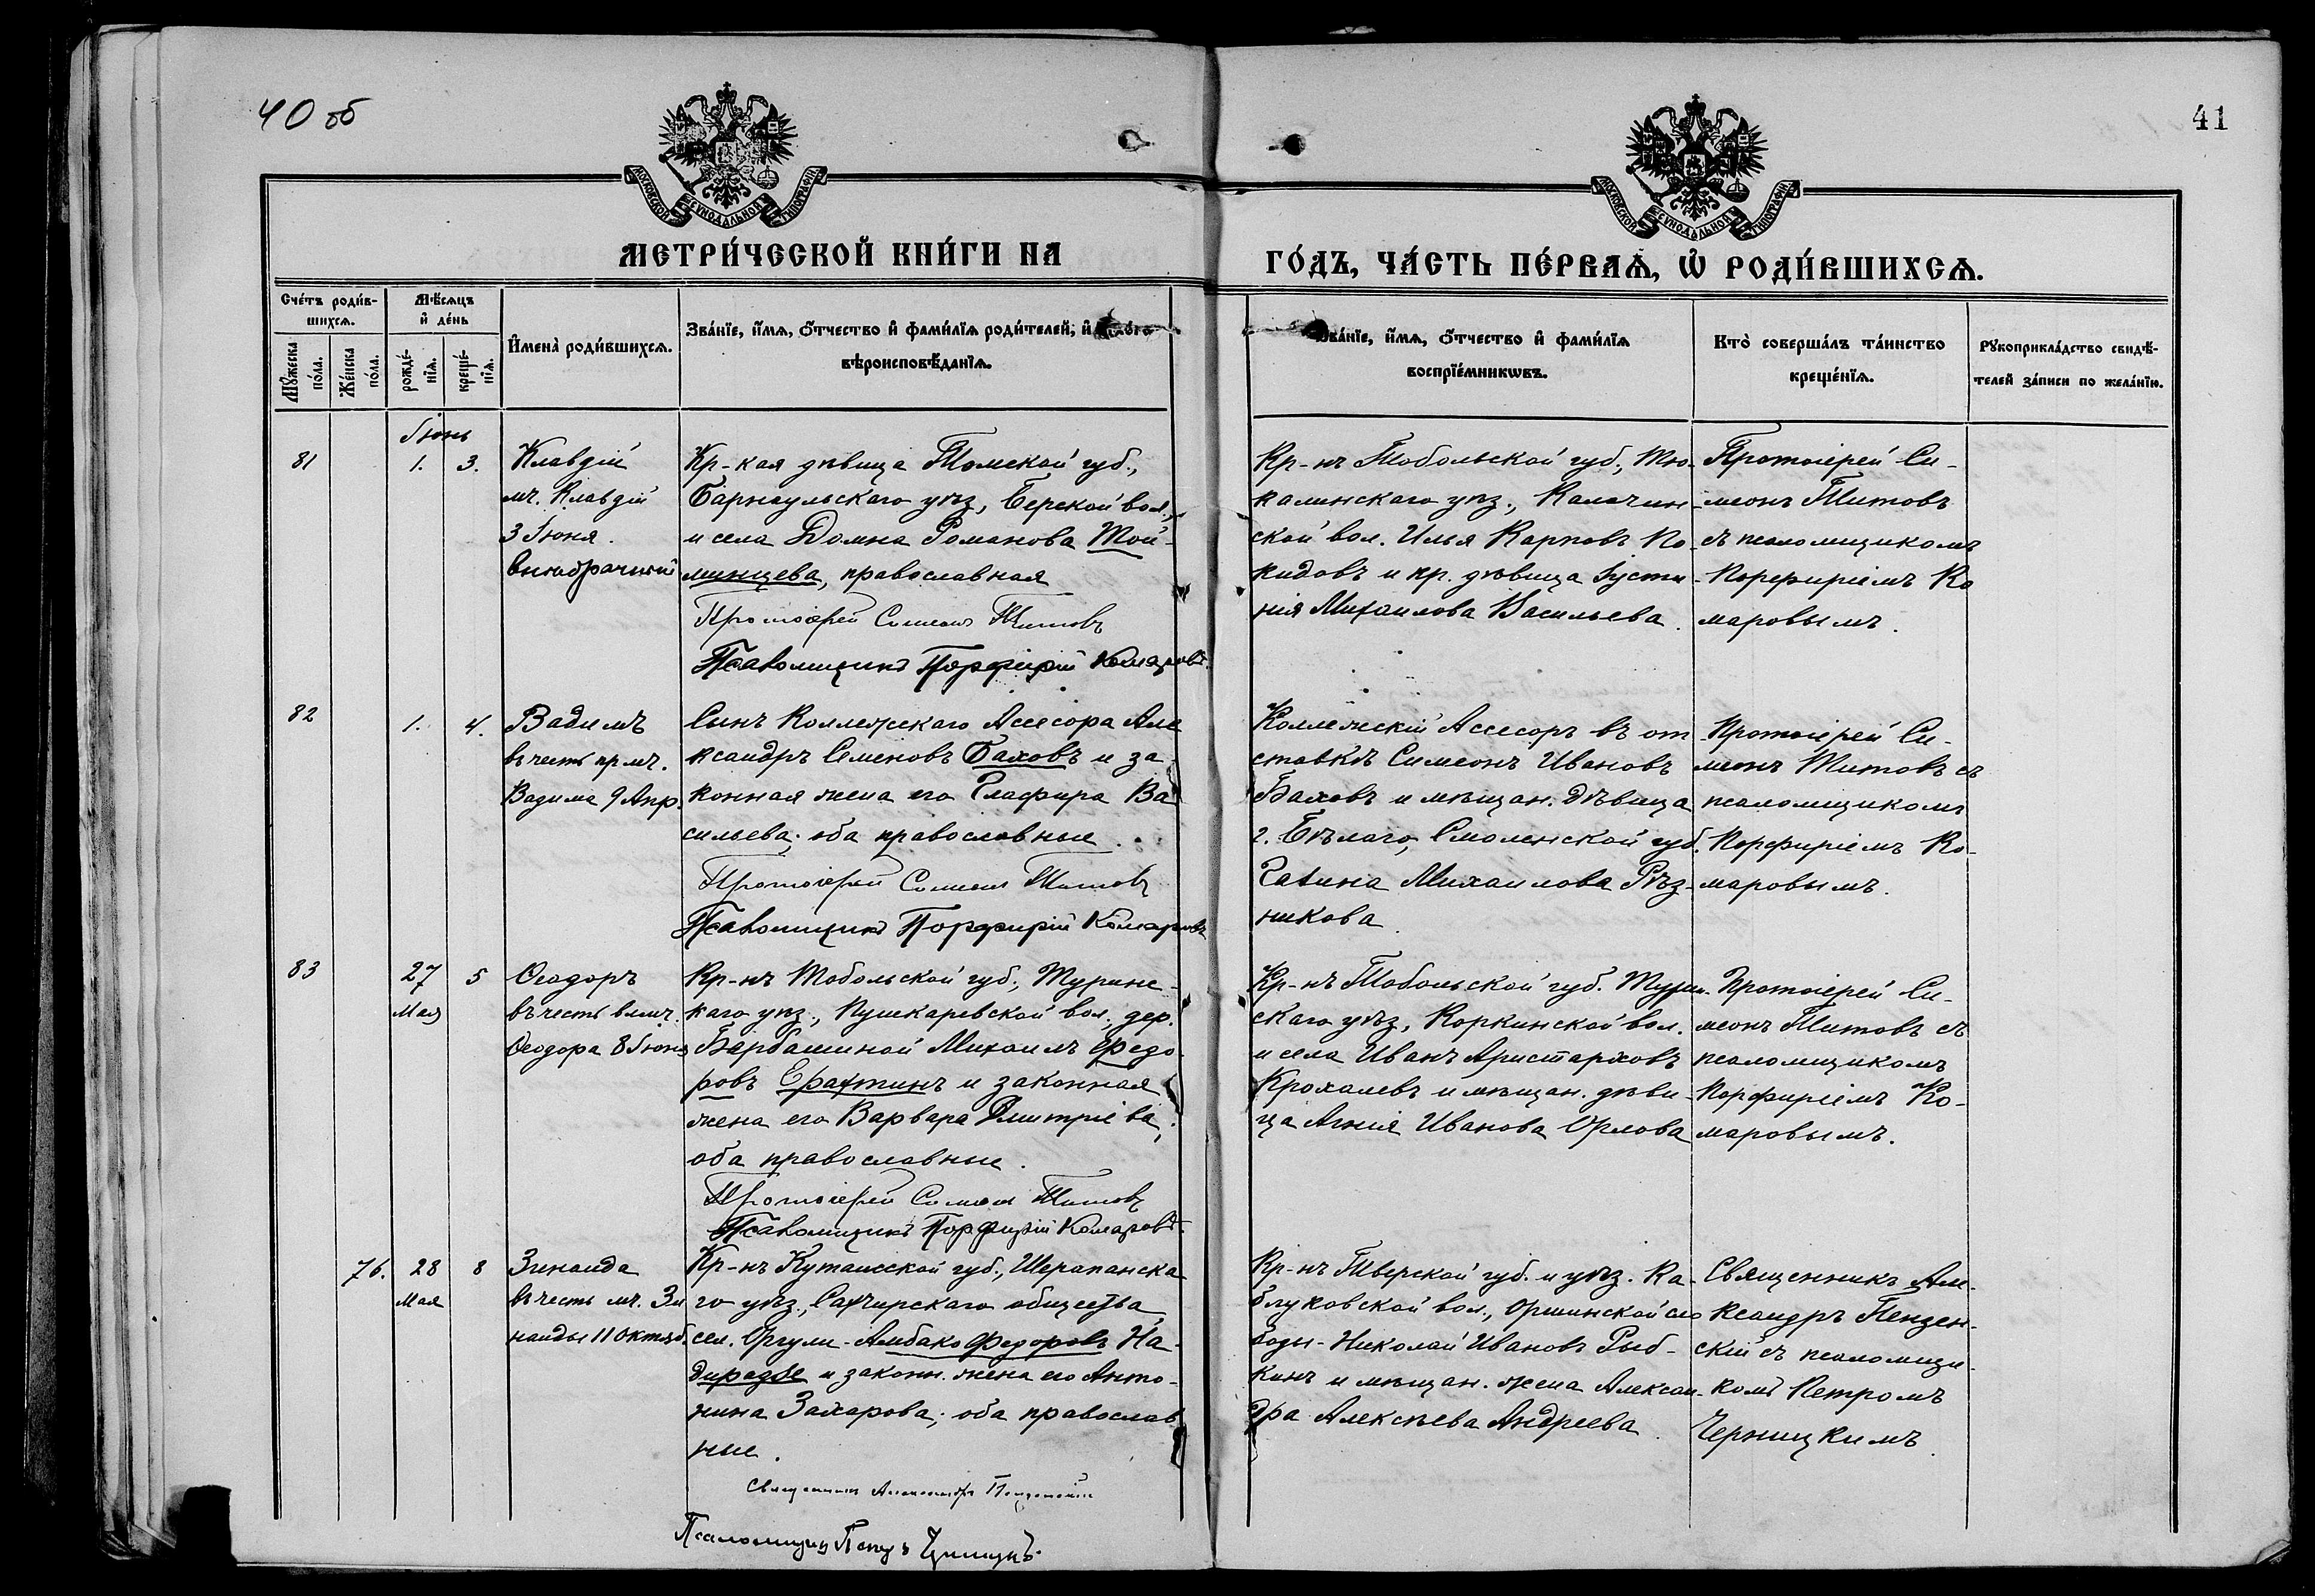 40 об
41
МОСКОВСКОЙ СѴНОДАЛЬНОЙ ТИПОГРАФІИ
МОСКОВСКОЙ СѴНОДАЛЬНОЙ ТИПОГРАФІИ
МЕТРИ́ЧЕСКОЙ КНИ́ГИ НА
ГО́ДЪ, ЧА́СТЬ ПЕ́РВАѦ, Ѡ҆ РОДИ́ВШИХСѦ.
Сче́тъ роди́в-
шихсѧ.
Мꙋ́жеска
по́ла.
Же́нска
по́ла.
Мѣ́сѧцъ
и҆ де́нь
рожде́-
нїѧ.
креще́-
нїѧ.
И҆мена̀ роди́вшихсѧ.
Зва́нїе, и҆́мѧ, ѻ҆́тчество и҆ фами́лїѧ роди́телей, и҆
вѣроисповѣ́данїѧ.
Зва́нїе, и҆́мѧ, ѻ҆́тчество и҆ фами́лїѧ
воспрїе́мникѡвъ.
Кто̀ соверша́лъ та́инство
креще́нїѧ.
Рꙋкоприкла́дство свидѣ́-
телей за́писи по жела́нїю.
Іюнь
81
1.
3.
Клавдій
мч. Клавдій
3 Іюня.
Внѣбрачный
Кр-кая дѣвица Томской губ.,
Барнаульскаго уѣз., Берской вол.,
и села Домна Романова Той-
минцева, православная
Протоіерей Симеонъ Титовъ
Псаломщикъ Порфирій Комаровъ.
Кр-нъ Тобольской губ., Тю-
калинскаго уѣз., Калачин-
ской вол. Илья Карповъ По-
кидовъ и кр. дѣвица Іусти-
нія Михаилова Васильева.
Протоіерей Си-
меонъ Титовъ
съ псаломщикомъ
Порфиріемъ Ко
маровымъ.
82
1.
4.
Вадимъ
въ честь прмч.
Вадима 9 Апр.
Сынъ Коллежскаго Ассесора Але
ксандръ Семеновъ Баховъ и за-
конная жена его Глафира Ва
сильева, оба православные.
Протоіерей Симеонъ Титовъ
Псаломщикъ Порфирій Комаровъ
Коллежскій Ассесоръ въ от
ставкѣ Симеонъ Ивановъ
Баховъ и мѣщан. дѣвица
г. Бѣлаго, Смоленской губ.
Галина Михаилова Рѣз-
никова.
Протоіерей Си-
меонъ Титовъ съ
псаломщикомъ
Порфиріемъ Ко-
маровымъ.
83
27
Мая
5
Ѳеодоръ
въ честь влмч.
Ѳеодора 8 Іюня
Кр-нъ Тобольской губ., Туринс-
каго уѣз., Пушкаревской вол., дер.
Барбашиной Михаилъ Ѳедо-
ровъ Ерахтинъ и законная
жена его Варвара Дмитріева,
оба православные.
Протоіерей Симеонъ Титовъ
Псаломщикъ Порфирій Комаровъ.
Кр-нъ Тобольской губ. Турин-
скаго уѣз., Коркинской вол.
и села Иванъ Аристарховъ
Крохалевъ и мѣщан. дѣви-
ца Агнія Иванова Орлова
Протоіерей Си-
меонъ Титовъ съ
псаломщикомъ
Порфиріемъ Ко-
маровымъ.
76.
28
Мая
8
Зинаида
въ честь мч. Зи
наиды 11 Октяб.
Кр-нъ Кутаисской губ., Шерапанска
го уѣз., Сахчирскаго общества,
сел. Оргули - Амбако Ѳедоровъ На-
дирадзе и законн. жена его Анто-
нина Захарова, оба православ
ные.
Священникъ Александръ Пензенскій
Псаломщикъ Петръ
Кр-нъ Тверской губ. и уѣз. Ка-
блуковской вол., Оршинской сло
боды - Николай Ивановъ Рыб-
кинъ и мѣщан. жена Алексан-
дра Алексѣева Андреева.
Священникъ Але-
ксандръ Пензен-
скій съ псаломщи-
комъ Петромъ
Черницкимъ.